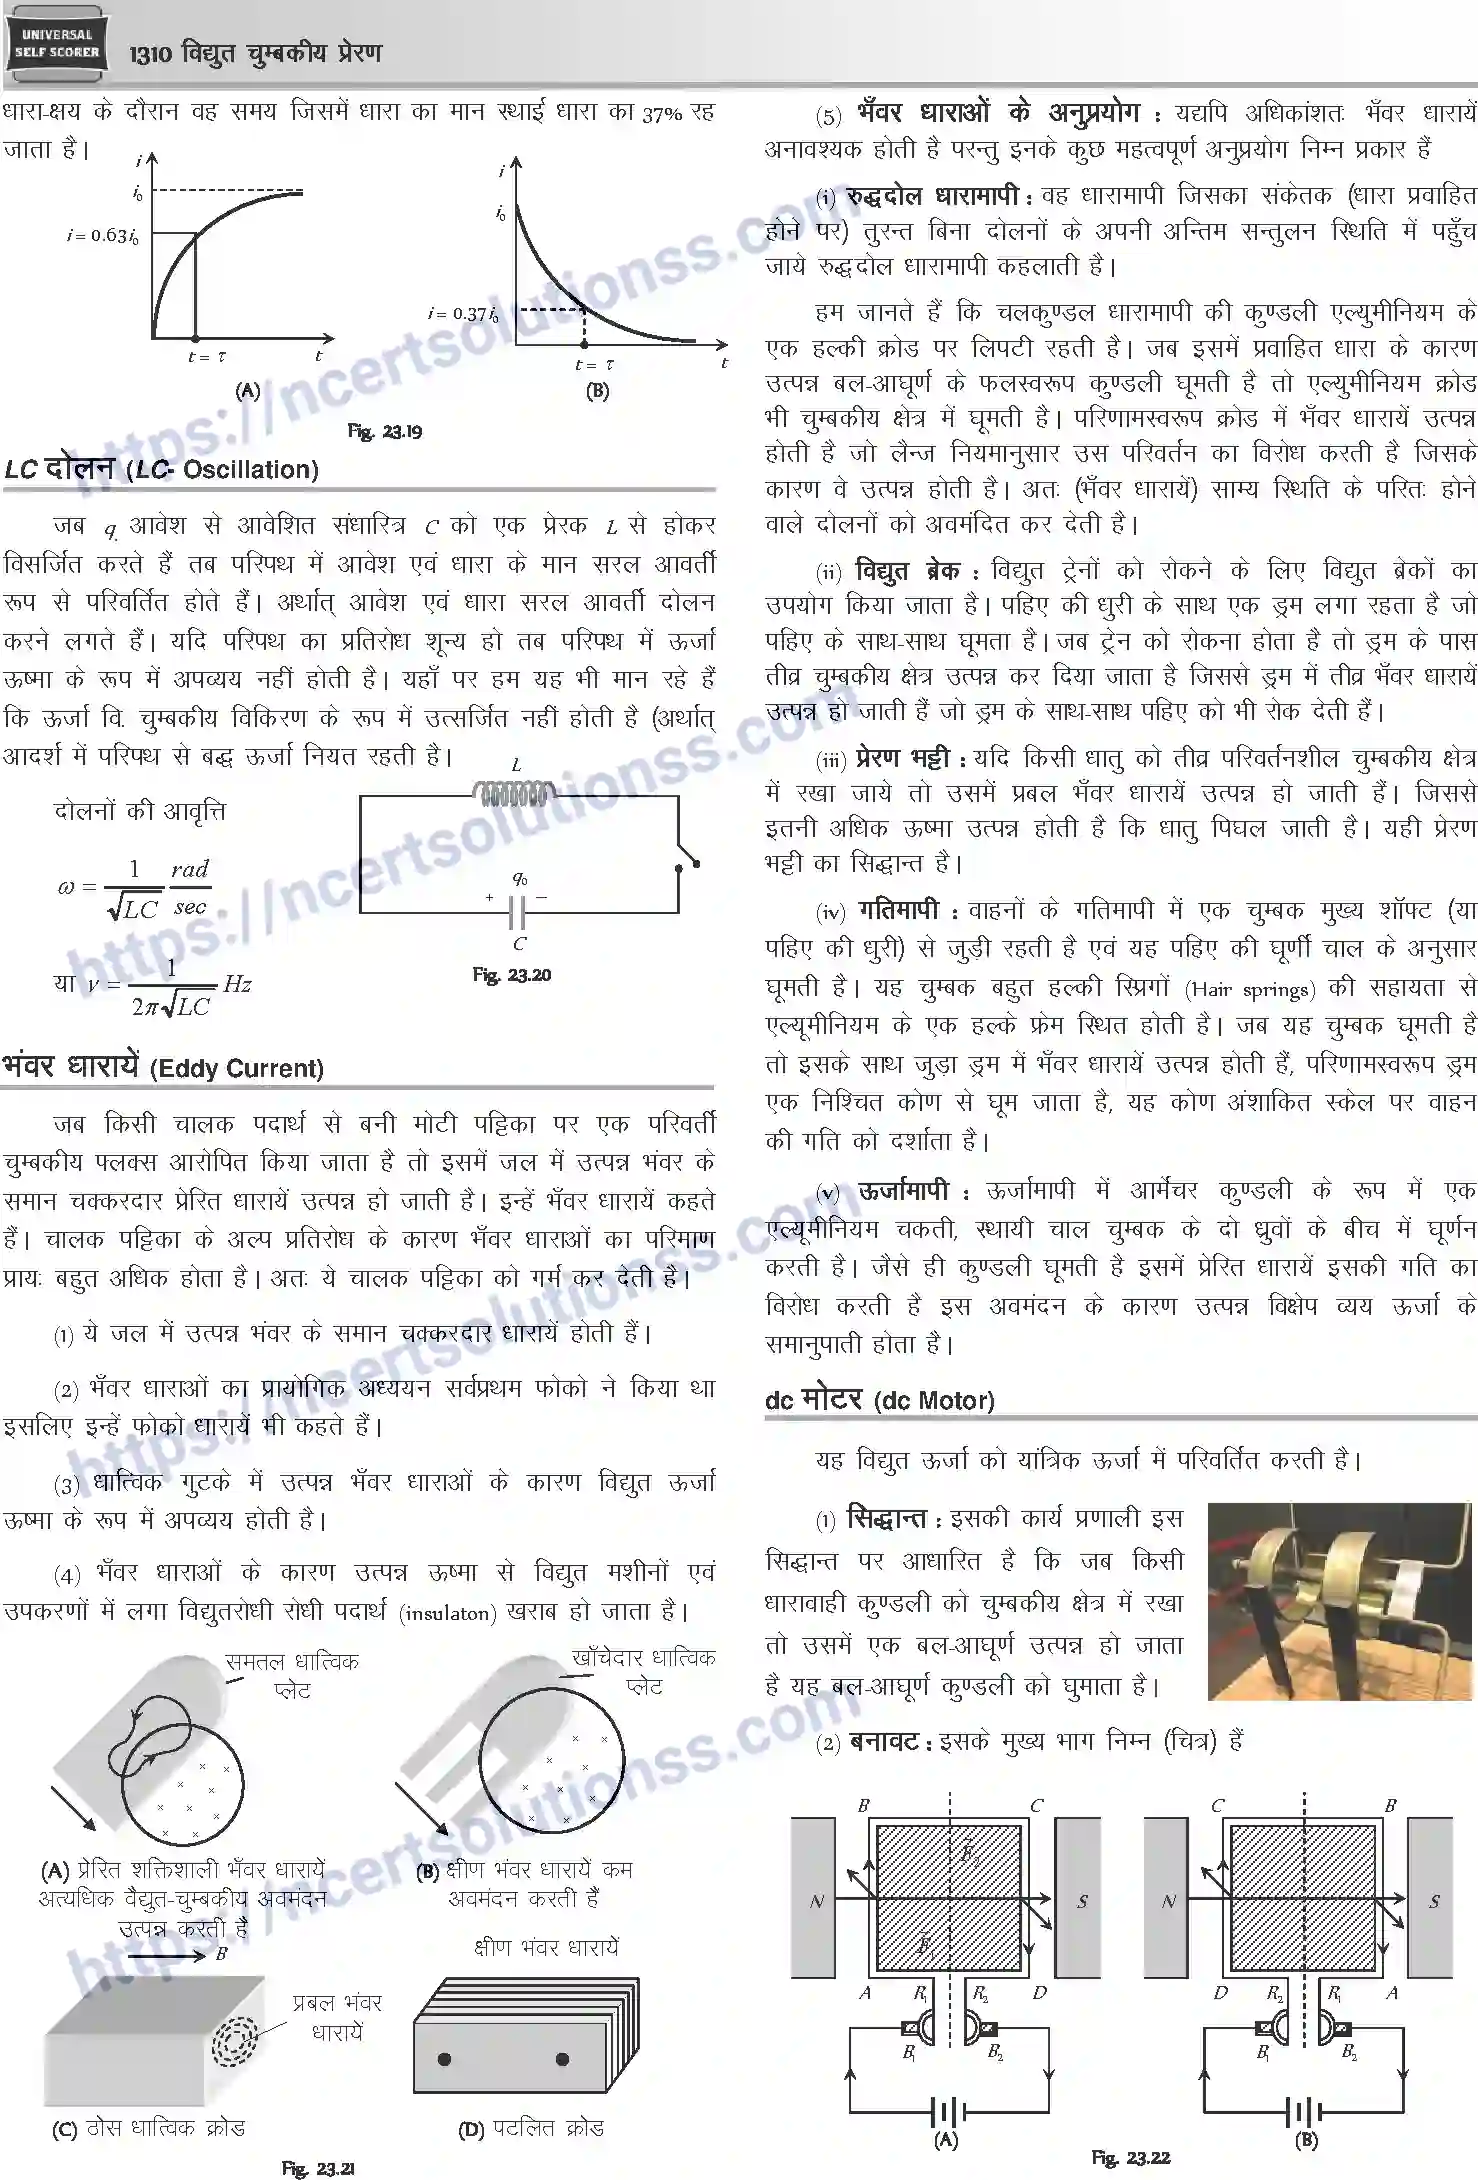 UNIVERSAL
SELF SCORER
1310 विद्युत चुम्बकीय प्रेरण
धारा-क्षय के दौरान वह समय जिसमें धारा का मान स्थाई धारा का 37% रह
जाता है।
i
i₀
i = 0.63i₀
t = τ
t
(A)
i
i₀
i = 0.37i₀
t = τ
t
(B)
Fig. 23.19
LC दोलन (LC- Oscillation)
जब q आवेश से आवेशित संधारित्र C को एक प्रेरक L से होकर
विसर्जित करते हैं तब परिपथ में आवेश एवं धारा के मान सरल आवर्ती
रूप से परिवर्तित होते हैं। अर्थात् आवेश एवं धारा सरल आवर्ती दोलन
करने लगते हैं। यदि परिपथ का प्रतिरोध शून्य हो तब परिपथ में ऊर्जा
ऊष्मा के रूप में अपव्यय नहीं होती है। यहाँ पर हम यह भी मान रहे हैं
कि ऊर्जा वि. चुम्बकीय विकिरण के रूप में उत्सर्जित नहीं होती है (अर्थात्
आदर्श में परिपथ से बद्ध ऊर्जा नियत रहती है)।
दोलनों की आवृत्ति
ω = 1/√LC rad/sec
या ν = 1/2π√LC Hz
L
q₀
+ –
C
Fig. 23.20
भंवर धारायें (Eddy Current)
जब किसी चालक पदार्थ से बनी मोटी पट्टिका पर एक परिवर्ती
चुम्बकीय फ्लक्स आरोपित किया जाता है तो इसमें जल में उत्पन्न भंवर के
समान चक्करदार प्रेरित धारायें उत्पन्न हो जाती है। इन्हें भँवर धारायें कहते
हैं। चालक पट्टिका के अल्प प्रतिरोध के कारण भँवर धाराओं का परिमाण
प्रायः बहुत अधिक होता है। अतः ये चालक पट्टिका को गर्म कर देती है।
(1) ये जल में उत्पन्न भंवर के समान चक्करदार धारायें होती हैं।
(2) भँवर धाराओं का प्रायोगिक अध्ययन सर्वप्रथम फोको ने किया था
इसलिए इन्हें फोको धारायें भी कहते हैं।
(3) धात्विक गुटके में उत्पन्न भँवर धाराओं के कारण विद्युत ऊर्जा
ऊष्मा के रूप में अपव्यय होती है।
(4) भँवर धाराओं के कारण उत्पन्न ऊष्मा से विद्युत मशीनों एवं
उपकरणों में लगा विद्युतरोधी रोधी पदार्थ (insulaton) खराब हो जाता है।
समतल धात्विक
प्लेट
(A) प्रेरित शक्तिशाली भँवर धारायें
अत्यधिक वैद्युत-चुम्बकीय अवमंदन
उत्पन्न करती है
खाँचेदार धात्विक
प्लेट
(B) क्षीण भंवर धारायें कम
अवमंदन करती हैं
B
प्रबल भंवर
धारायें
(C) ठोस धात्विक क्रोड
क्षीण भंवर धारायें
(D) पटलित क्रोड
Fig. 23.21
(5) भँवर धाराओं के अनुप्रयोग : यद्यपि अधिकांशतः भँवर धारायें
अनावश्यक होती है परन्तु इनके कुछ महत्वपूर्ण अनुप्रयोग निम्न प्रकार हैं
(i) रुद्धदोल धारामापी : वह धारामापी जिसका संकेतक (धारा प्रवाहित
होने पर) तुरन्त बिना दोलनों के अपनी अन्तिम सन्तुलन स्थिति में पहुँच
जाये रुद्धदोल धारामापी कहलाती है।
हम जानते हैं कि चलकुण्डल धारामापी की कुण्डली एल्युमीनियम के
एक हल्की क्रोड पर लिपटी रहती है। जब इसमें प्रवाहित धारा के कारण
उत्पन्न बल-आघूर्ण के फलस्वरूप कुण्डली घूमती है तो एल्युमीनियम क्रोड
भी चुम्बकीय क्षेत्र में घूमती है। परिणामस्वरूप क्रोड में भँवर धारायें उत्पन्न
होती है जो लैन्ज नियमानुसार उस परिवर्तन का विरोध करती है जिसके
कारण वे उत्पन्न होती है। अतः (भँवर धारायें) साम्य स्थिति के परितः होने
वाले दोलनों को अवमंदित कर देती है।
(ii) विद्युत ब्रेक : विद्युत ट्रेनों को रोकने के लिए विद्युत ब्रेकों का
उपयोग किया जाता है। पहिए की धुरी के साथ एक ड्रम लगा रहता है जो
पहिए के साथ-साथ घूमता है। जब ट्रेन को रोकना होता है तो ड्रम के पास
तीव्र चुम्बकीय क्षेत्र उत्पन्न कर दिया जाता है जिससे ड्रम में तीव्र भँवर धारायें
उत्पन्न हो जाती हैं जो ड्रम के साथ-साथ पहिए को भी रोक देती हैं।
(iii) प्रेरण भट्टी : यदि किसी धातु को तीव्र परिवर्तनशील चुम्बकीय क्षेत्र
में रखा जाये तो उसमें प्रबल भँवर धारायें उत्पन्न हो जाती हैं। जिससे
इतनी अधिक ऊष्मा उत्पन्न होती है कि धातु पिघल जाती है। यही प्रेरण
भट्टी का सिद्धान्त है।
(iv) गतिमापी : वाहनों के गतिमापी में एक चुम्बक मुख्य शॉफ्ट (या
पहिए की धुरी) से जुड़ी रहती है एवं यह पहिए की घूर्णी चाल के अनुसार
घूमती है। यह चुम्बक बहुत हल्की स्प्रिगों (Hair springs) की सहायता से
एल्यूमीनियम के एक हल्के फ्रेम स्थित होती है। जब यह चुम्बक घूमती है
तो इसके साथ जुड़ा ड्रम में भँवर धारायें उत्पन्न होती हैं, परिणामस्वरूप ड्रम
एक निश्चित कोण से घूम जाता है, यह कोण अंशाकित स्केल पर वाहन
की गति को दर्शाता है।
(v) ऊर्जामापी : ऊर्जामापी में आर्मेचर कुण्डली के रूप में एक
एल्यूमीनियम चकती, स्थायी चाल चुम्बक के दो ध्रुवों के बीच में घूर्णन
करती है। जैसे ही कुण्डली घूमती है इसमें प्रेरित धारायें इसकी गति का
विरोध करती है इस अवमंदन के कारण उत्पन्न विक्षेप व्यय ऊर्जा के
समानुपाती होता है।
dc मोटर (dc Motor)
यह विद्युत ऊर्जा को यांत्रिक ऊर्जा में परिवर्तित करती है।
(1) सिद्धान्त : इसकी कार्य प्रणाली इस
सिद्धान्त पर आधारित है कि जब किसी
धारावाही कुण्डली को चुम्बकीय क्षेत्र में रखा
तो उसमें एक बल-आघूर्ण उत्पन्न हो जाता
है यह बल-आघूर्ण कुण्डली को घुमाता है।
(2) बनावट : इसके मुख्य भाग निम्न (चित्र) हैं
B C
F₂
N S
F₁
A R₁ R₂ D
B₁ B₂
(A)
C B
N S
D R₂ R₁ A
B₁ B₂
(B)
Fig. 23.22
https://ncertsolutionss.com
https://ncertsolutionss.com
https://ncertsolutionss.com
https://ncertsolutionss.com